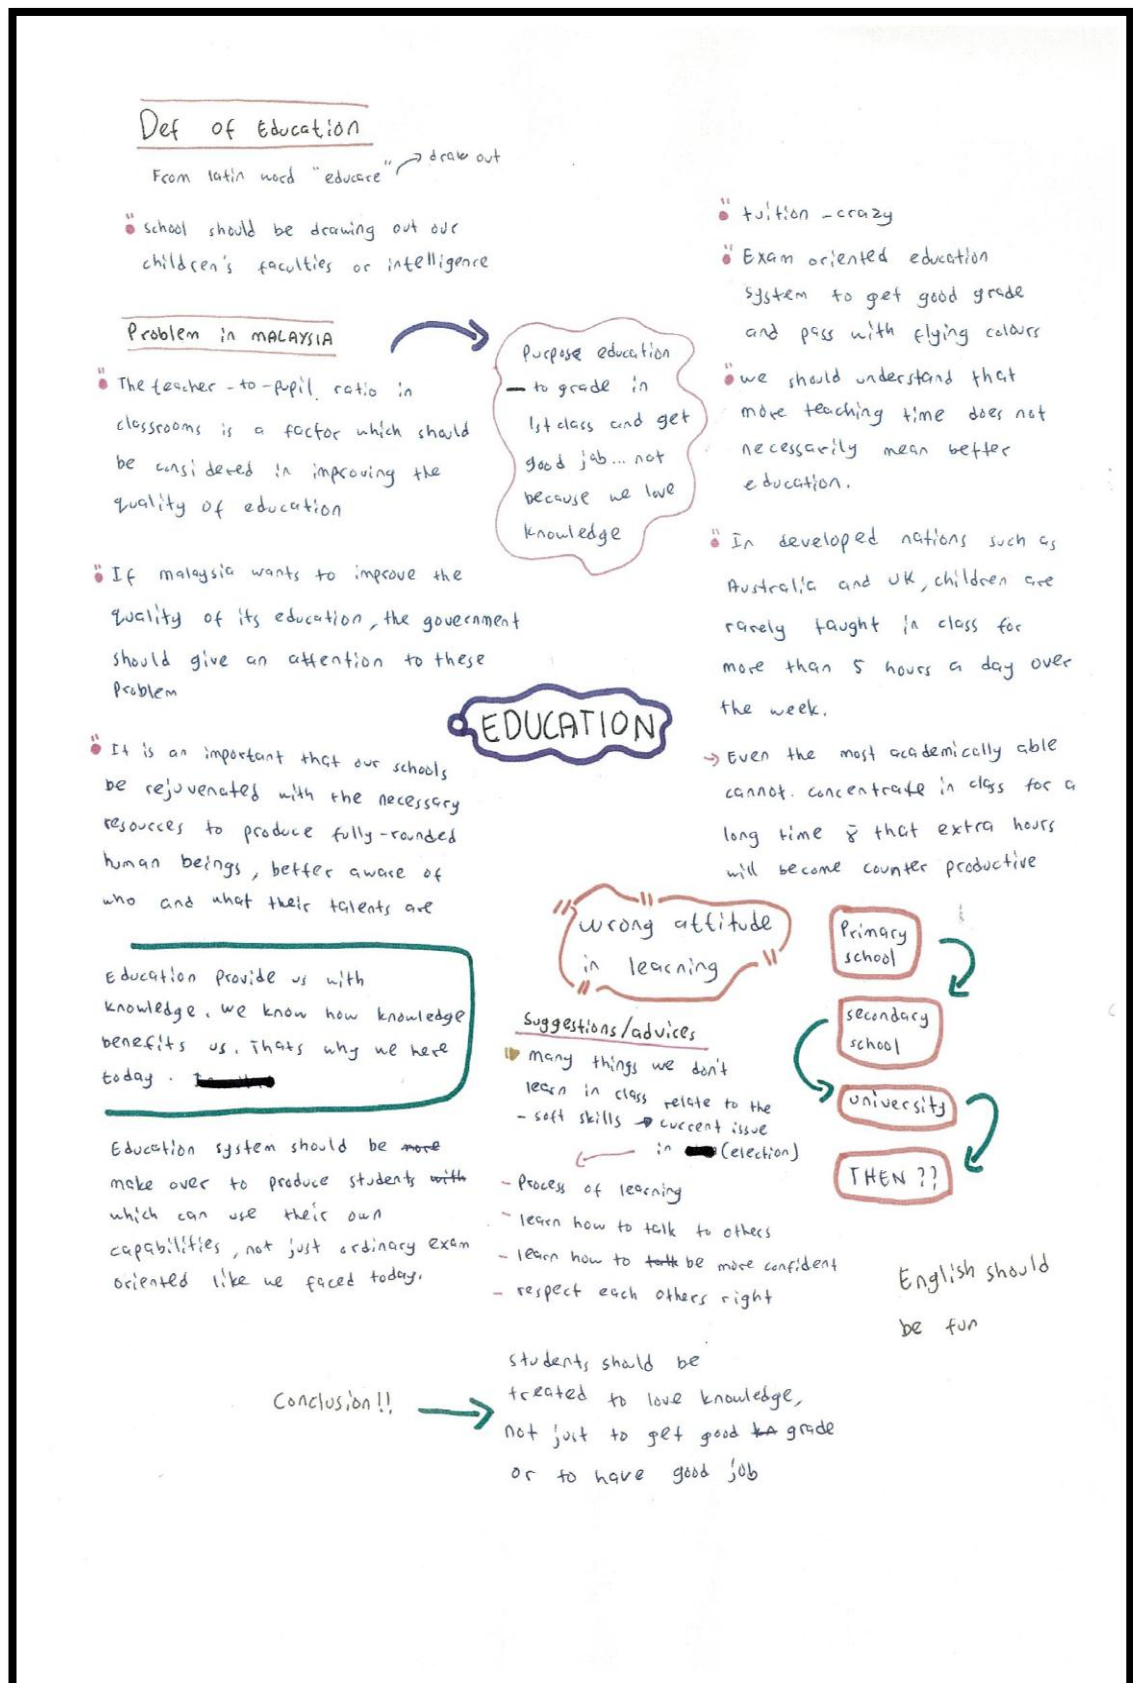 Def of Education
From latin word "educare" → draw out
school should be drawing out our
children's faculties or intelligence
Problem in MALAYSIA
The teacher-to-pupil ratio in
classrooms is a factor which should
be considered in improving the
quality of education
If malaysia wants to improve the
quality of its education, the government
should give an attention to these
Problem
It is an important that our schools
be rejuvenated with the necessary
resources to produce fully-rounded
human beings, better aware of
who and what their talents are
Education Provide us with
knowledge. we know how knowledge
benefits us. Thats why we here
today.
Education system should be more
make over to produce students with
which can use their own
capabilities, not just ordinary exam
oriented like we faced today.
Purpose education
- to grade in
1st class and get
good job... not
because we love
knowledge
EDUCATION
tuition - crazy
Exam oriented education
system to get good grade
and pass with flying colours
we should understand that
more teaching time does not
necessarily mean better
education.
In developed nations such as
Australia and UK, children are
rarely taught in class for
more than 5 hours a day over
the week.
→ Even the most academically able
cannot. concentrate in class for a
long time & that extra hours
will become counter productive
wrong attitude
in learning
Suggestions/advices
many things we don't
learn in class relate to the
- soft skills → current issue
in (election)
- Process of learning
- learn how to talk to others
- learn how to talk be more confident
- respect each others right
Primary
school
secondary
school
university
THEN ??
English should
be fun
Conclusion!! →
students should be
treated to love knowledge,
not just to get good grade
or to have good job